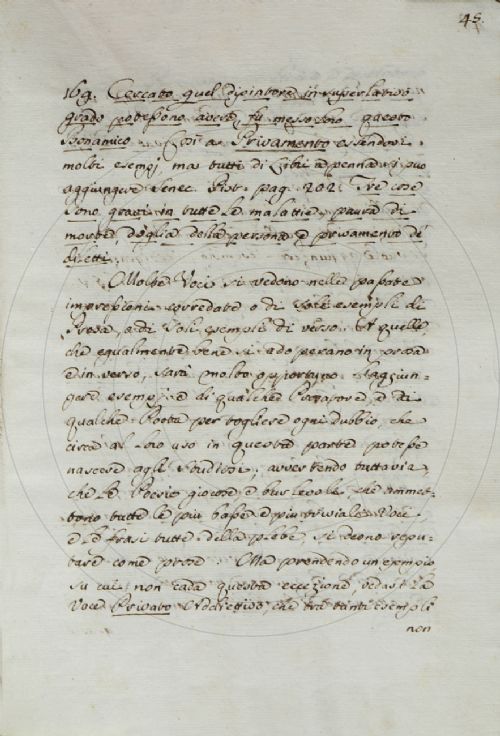 45.
169. Cercato quel dipintore in superlativo
grado potessono avere, fu messo uno questo
Bonamico. Così a Privamento essendovi
molti esempj, ma tutti di Libri a penna si può
aggiungere Senec. Pist. pag. 202. Tre cose
sono gravi in tutte le malattie, paura di
morte, doglia della persona e privamento de'
diletti.
Molte Voci si vedono nelle passate
impressioni corredate o di soli esempli di
Prosa, o di soli esempli di verso. A quelle,
che egualmente bene si adoperano in prosa
e in verso, sarà molto opportuno l'aggiun-
gere esempj e di qualche Prosatore, e di
qualche Poeta per togliere ogni dubbio, che
circa al loro uso in questa parte potesse
nascere agli studiosi, avvertendo tuttavia,
che le Poesie giocose e burlevoli, che ammet-
tono tutte le più basse e più triviali Voci
e le frasi tutte della plebe, si deono repu-
tare come prose. Ma prendendo un esempio,
su cui non cada questa eccezione, vedasi la
Voce Privato Addiettivo, che tra tanti esempli
non